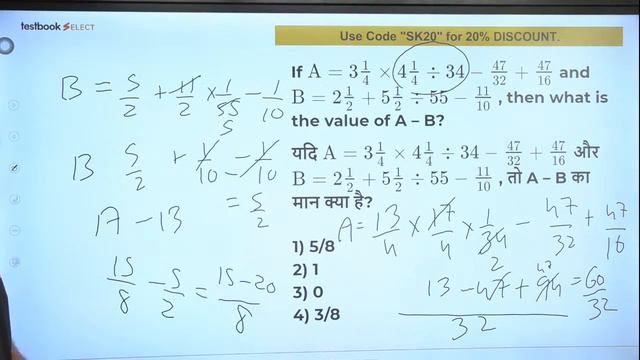 testbook SELECT
Use Code "SK20" for 20% DISCOUNT.
If A = 3 1/4 × 4 1/4 ÷ 34 − 47/32 + 47/16 and
B = 2 1/2 + 5 1/2 ÷ 55 − 11/10 , then what is
the value of A – B?
यदि A = 3 1/4 × 4 1/4 ÷ 34 − 47/32 + 47/16 और
B = 2 1/2 + 5 1/2 ÷ 55 − 11/10 , तो A – B का
मान क्या है?
1) 5/8
2) 1
3) 0
4) 3/8
B = 5/2 + 11/2 × 1/55 − 1/10
5
B 5/2 + 1/10 − 1/10
= 5/2
A − B
15/8 − 5/2 = 15 − 20/8
A = 13/4 × 17/4 × 1/34 − 47/32 + 47/16
2
47
13 − 47 + 94/32 = 60/32